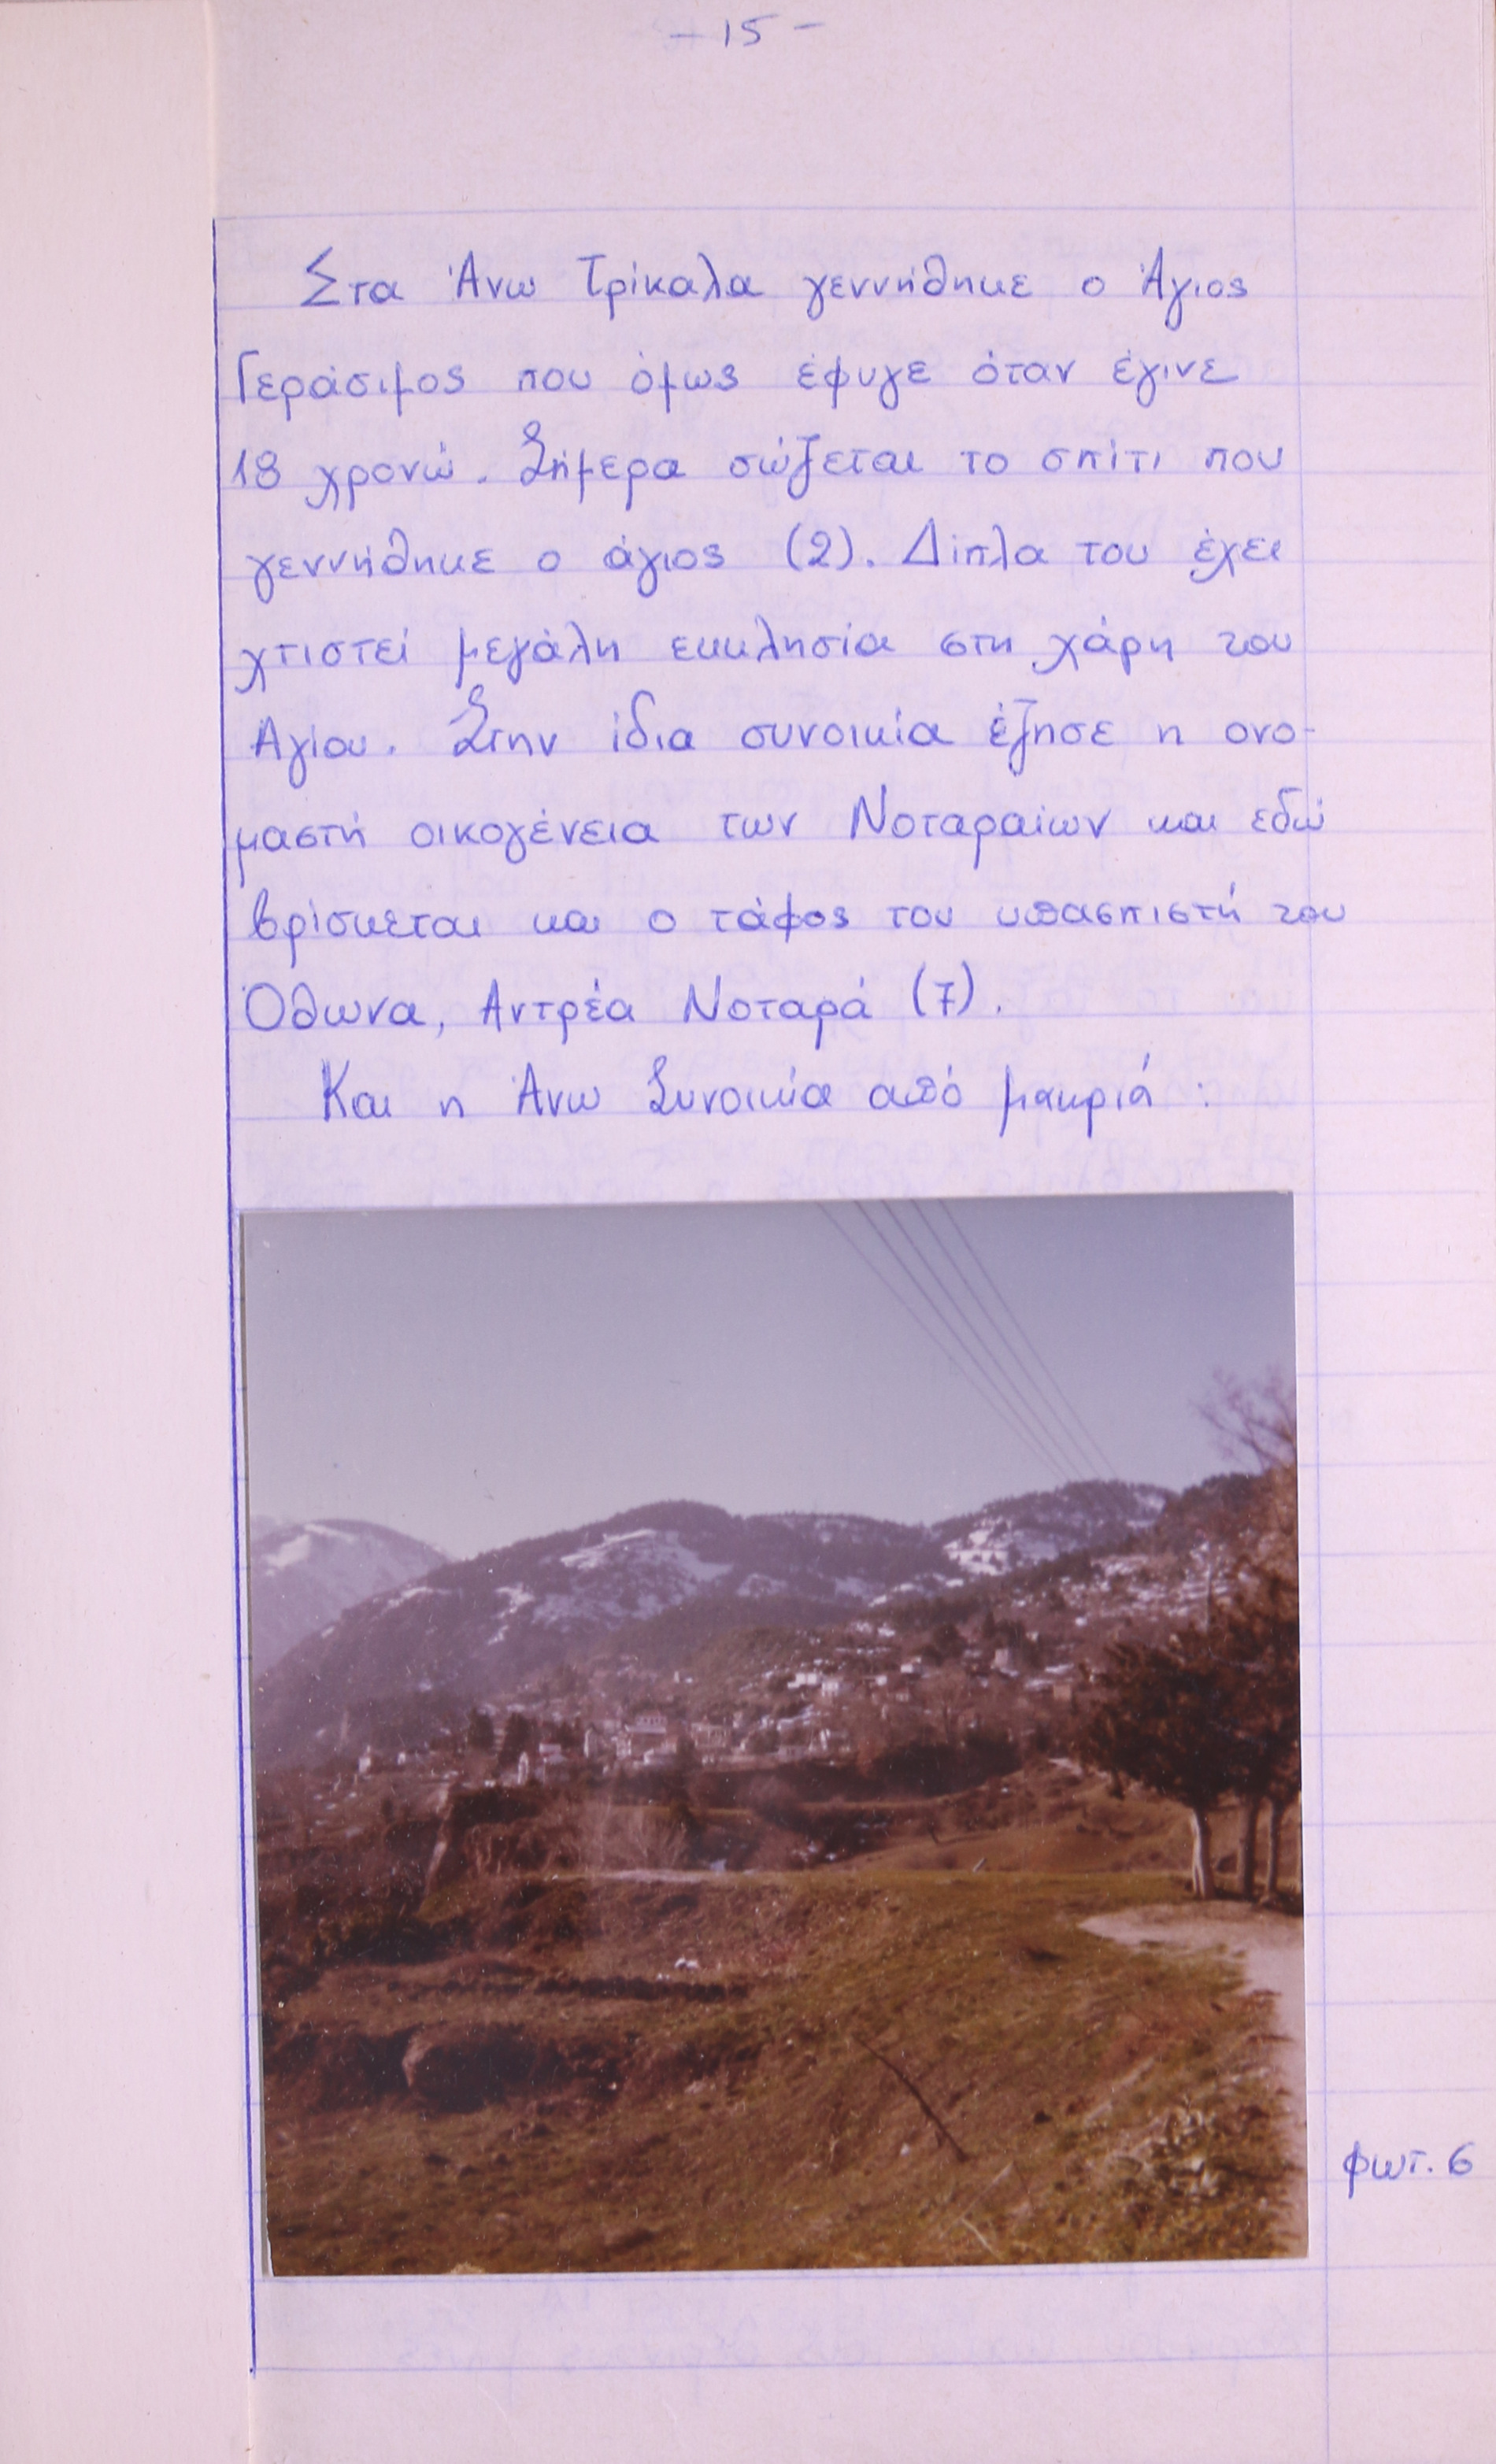 - 15 -
Στα Άνω Τρίκαλα γεννήθηκε ο Άγιος
Γεράσιμος που όμως έφυγε όταν έγινε
18 χρονώ. Σήμερα σώζεται το σπίτι που
γεννήθηκε ο άγιος (2). Δίπλα του έχει
χτιστεί μεγάλη εκκλησία στη χάρη του
Αγίου. Στην ίδια συνοικία έζησε η ονο-
μαστή οικογένεια των Νοταραίων και εδώ
βρίσκεται και ο τάφος του υπασπιστή του
Όθωνα, Αντρέα Νοταρά (7).
Και η Άνω Συνοικία από μακριά :
φωτ. 6